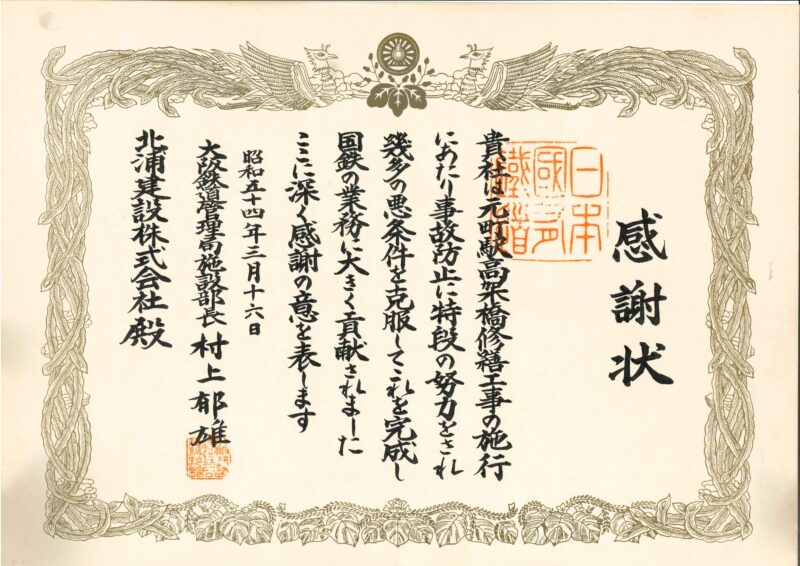 感謝状
日本
國有
鐵道
貴社は元町駅高架橋修繕工事の施行
にあたり事故防止に特段の努力をされ
幾多の悪条件を克服してこれを完成し
国鉄の業務に大きく貢献されました
ここに深く感謝の意を表します
昭和五十四年三月十六日
大阪鉄道管理局施設部長 村上郁雄
北浦建設株式会社殿